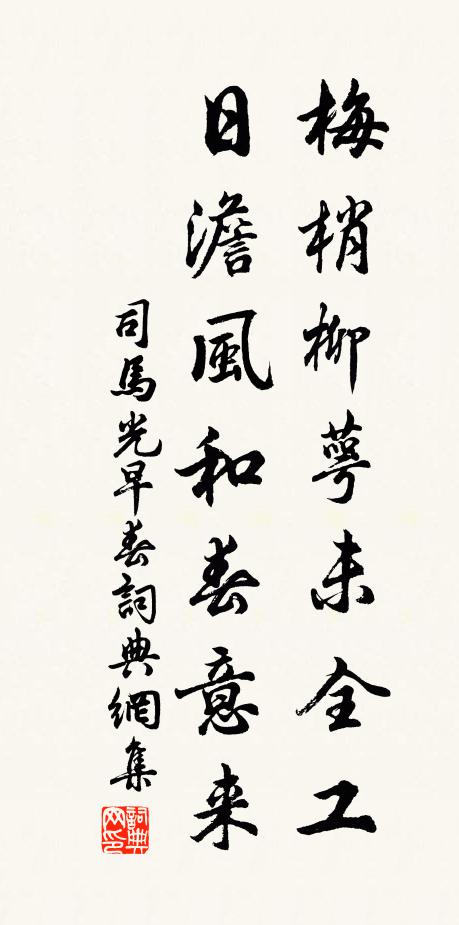 梅梢柳萼未全工
日澹風和春意来
司馬光早春詞典網集
詞典网印